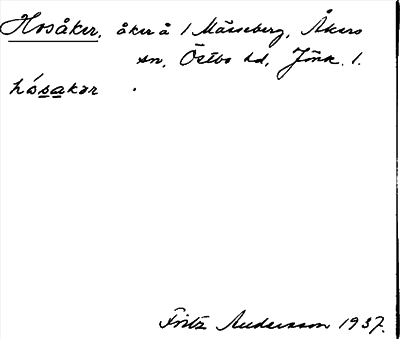 Hosåker, åker å 1 Mässeberg, Åkers
sn, Östbo hd, Jönk. l.
hósakər .
Fritz Andersson 1937.